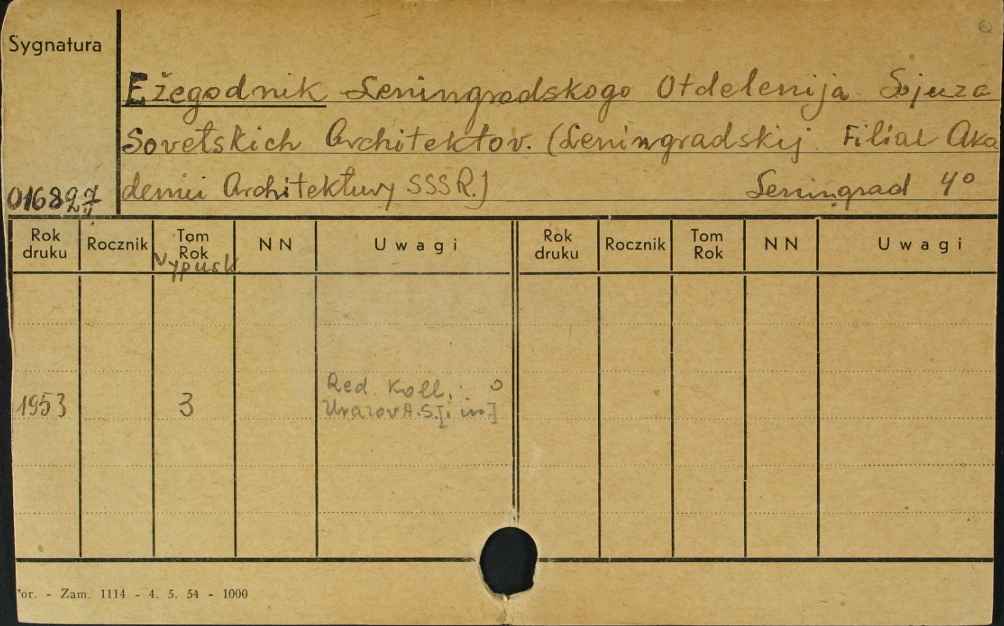 Sygnatura
Ežegodnik Leningradskogo Otdelenija Sojuza
Sovetskich Architektov. (Leningradskij Filial Aka
demii Architektury SSSR.)
Leningrad 4º
016827
Rok druku Rocznik Tom Rok NN Uwagi Rok druku Rocznik Tom Rok NN Uwagi
Vypusk
Red. Koll.:
1953 3 A.S. [i in.]
or. - Zam. 1114 - 4. 5. 54 - 1000